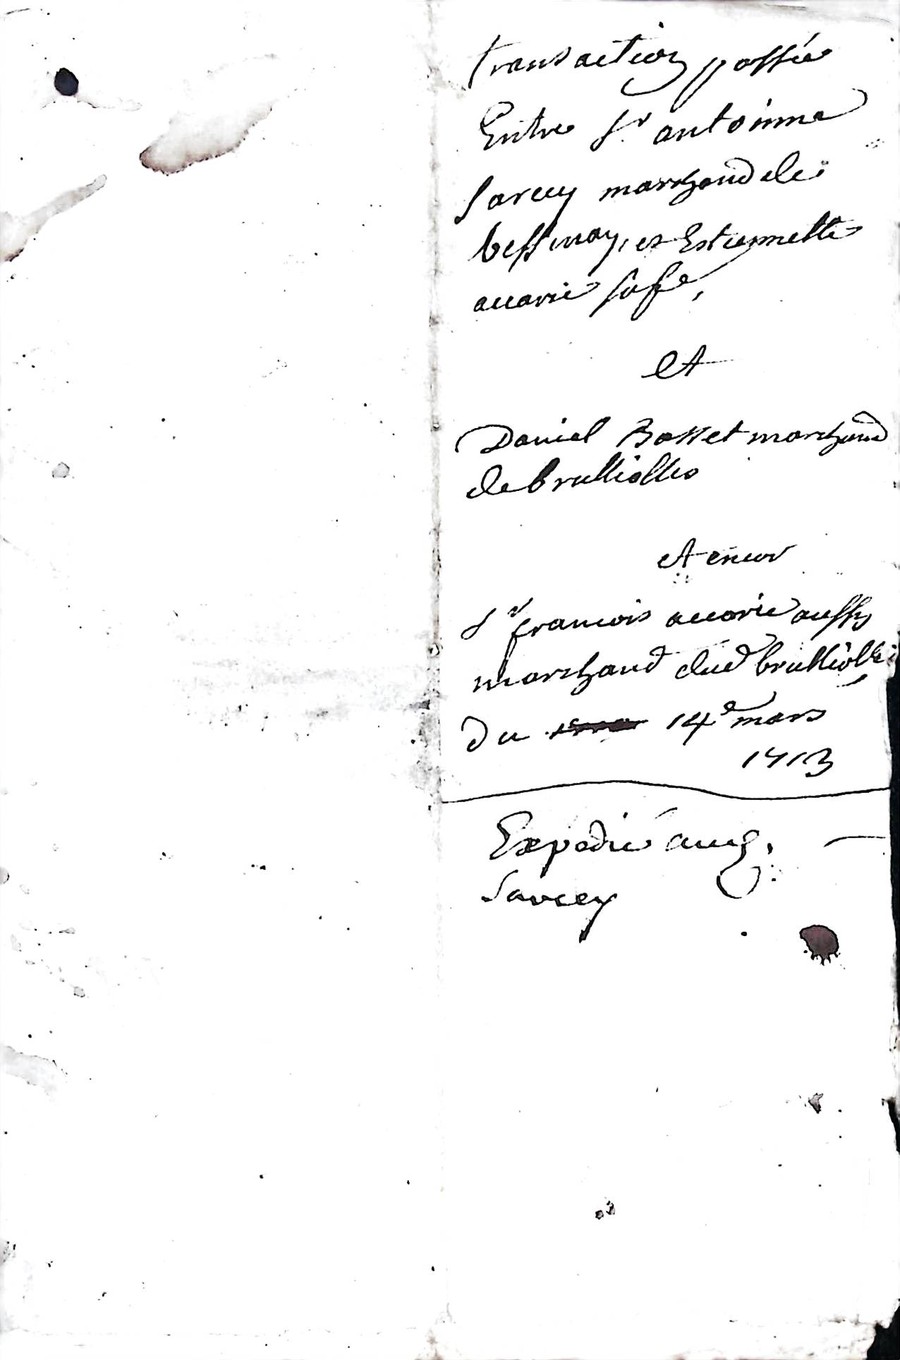 transaction passée
Entre Sr antoinne
Sarcey marchand de
bessenay, et Estiennette
accarie sa fe,
et
Daniel Basset marchand
de brulliolles
et encor
Sr francois accarie aussy
marchand dud brulliolles
du 14e mars
1713
Expedié aud.
Sarcey